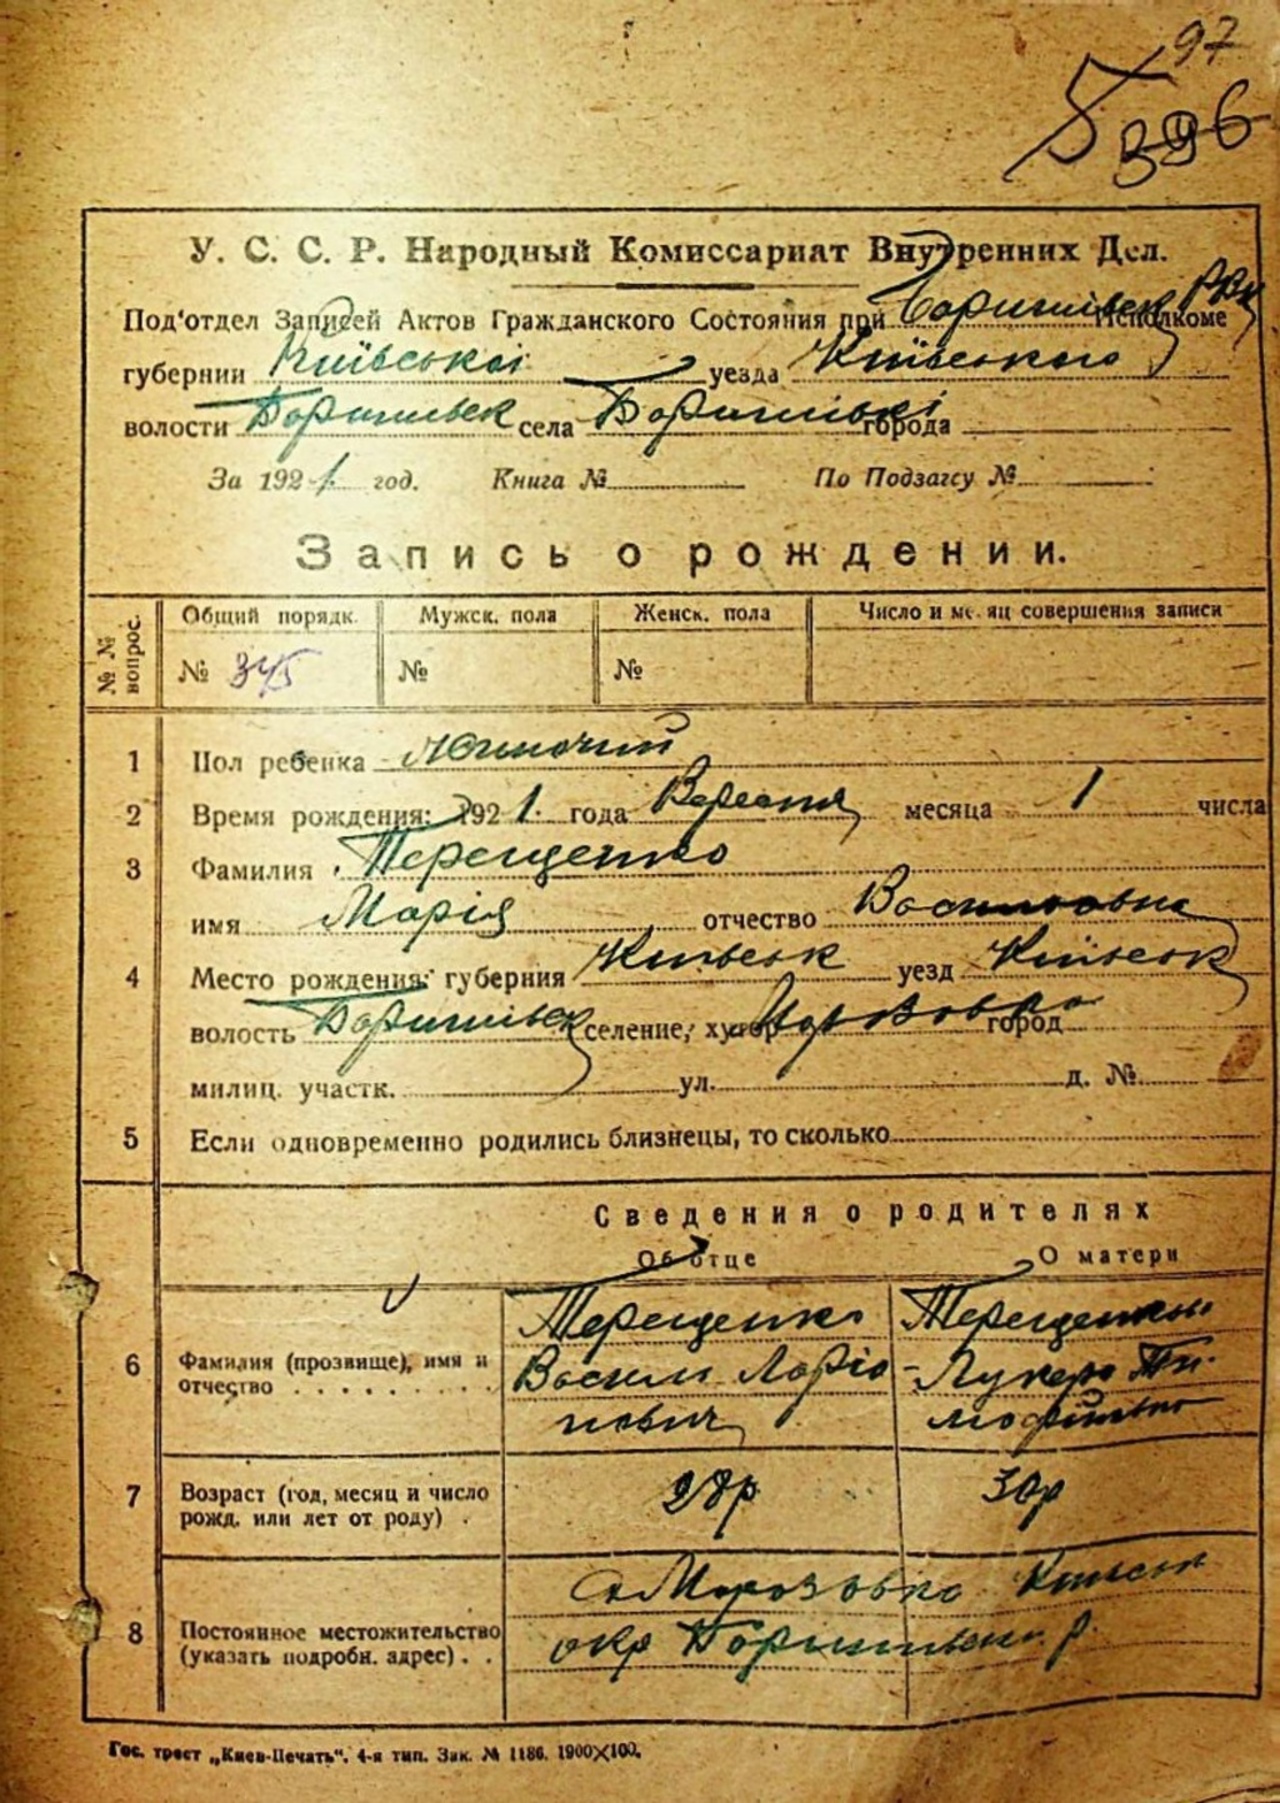 97
396
У. С. С. Р. Народный Комиссариат Внутренних Дел.
Под'отдел Записей Актов Гражданского Состояния при Баришівськ РВК Исполкоме
губернии Київської уезда Київського
волости Баришівськ села Баришівкі города
За 1921. год. Книга № По Подзагсу №
Запись о рождении.
№ № вопрос.
Общий порядк. Мужск. пола Женск. пола Число и месяц совершения записи
№ 345 № №
1 Пол ребенка Жиночий
2 Время рождения: 1921. года Вересня месяца 1 числа
3 Фамилия Терещенко
имя Марія отчество Василовна
4 Место рождения: губерния Київськ уезд Київськ
волость Баришівськ селение, хутор город
милиц. участк. ул. д. №
5 Если одновременно родились близнецы, то сколько
Сведения о родителях
Об отце О матери
6 Фамилия (прозвище), имя и отчество
Терещенко
Василь Ларіо
нович
Терещенко
Лукера Ти-
мофіївно
7 Возраст (год, месяц и число рожд. или лет от роду) .
28р 30р
8 Постоянное местожительство (указать подробн. адрес) . .
с Морозовка Київськ
окр Баришівськ. р.
Гос. трест „Киев-Печать“. 4-я тип. Зак. № 1186. 1900×100.